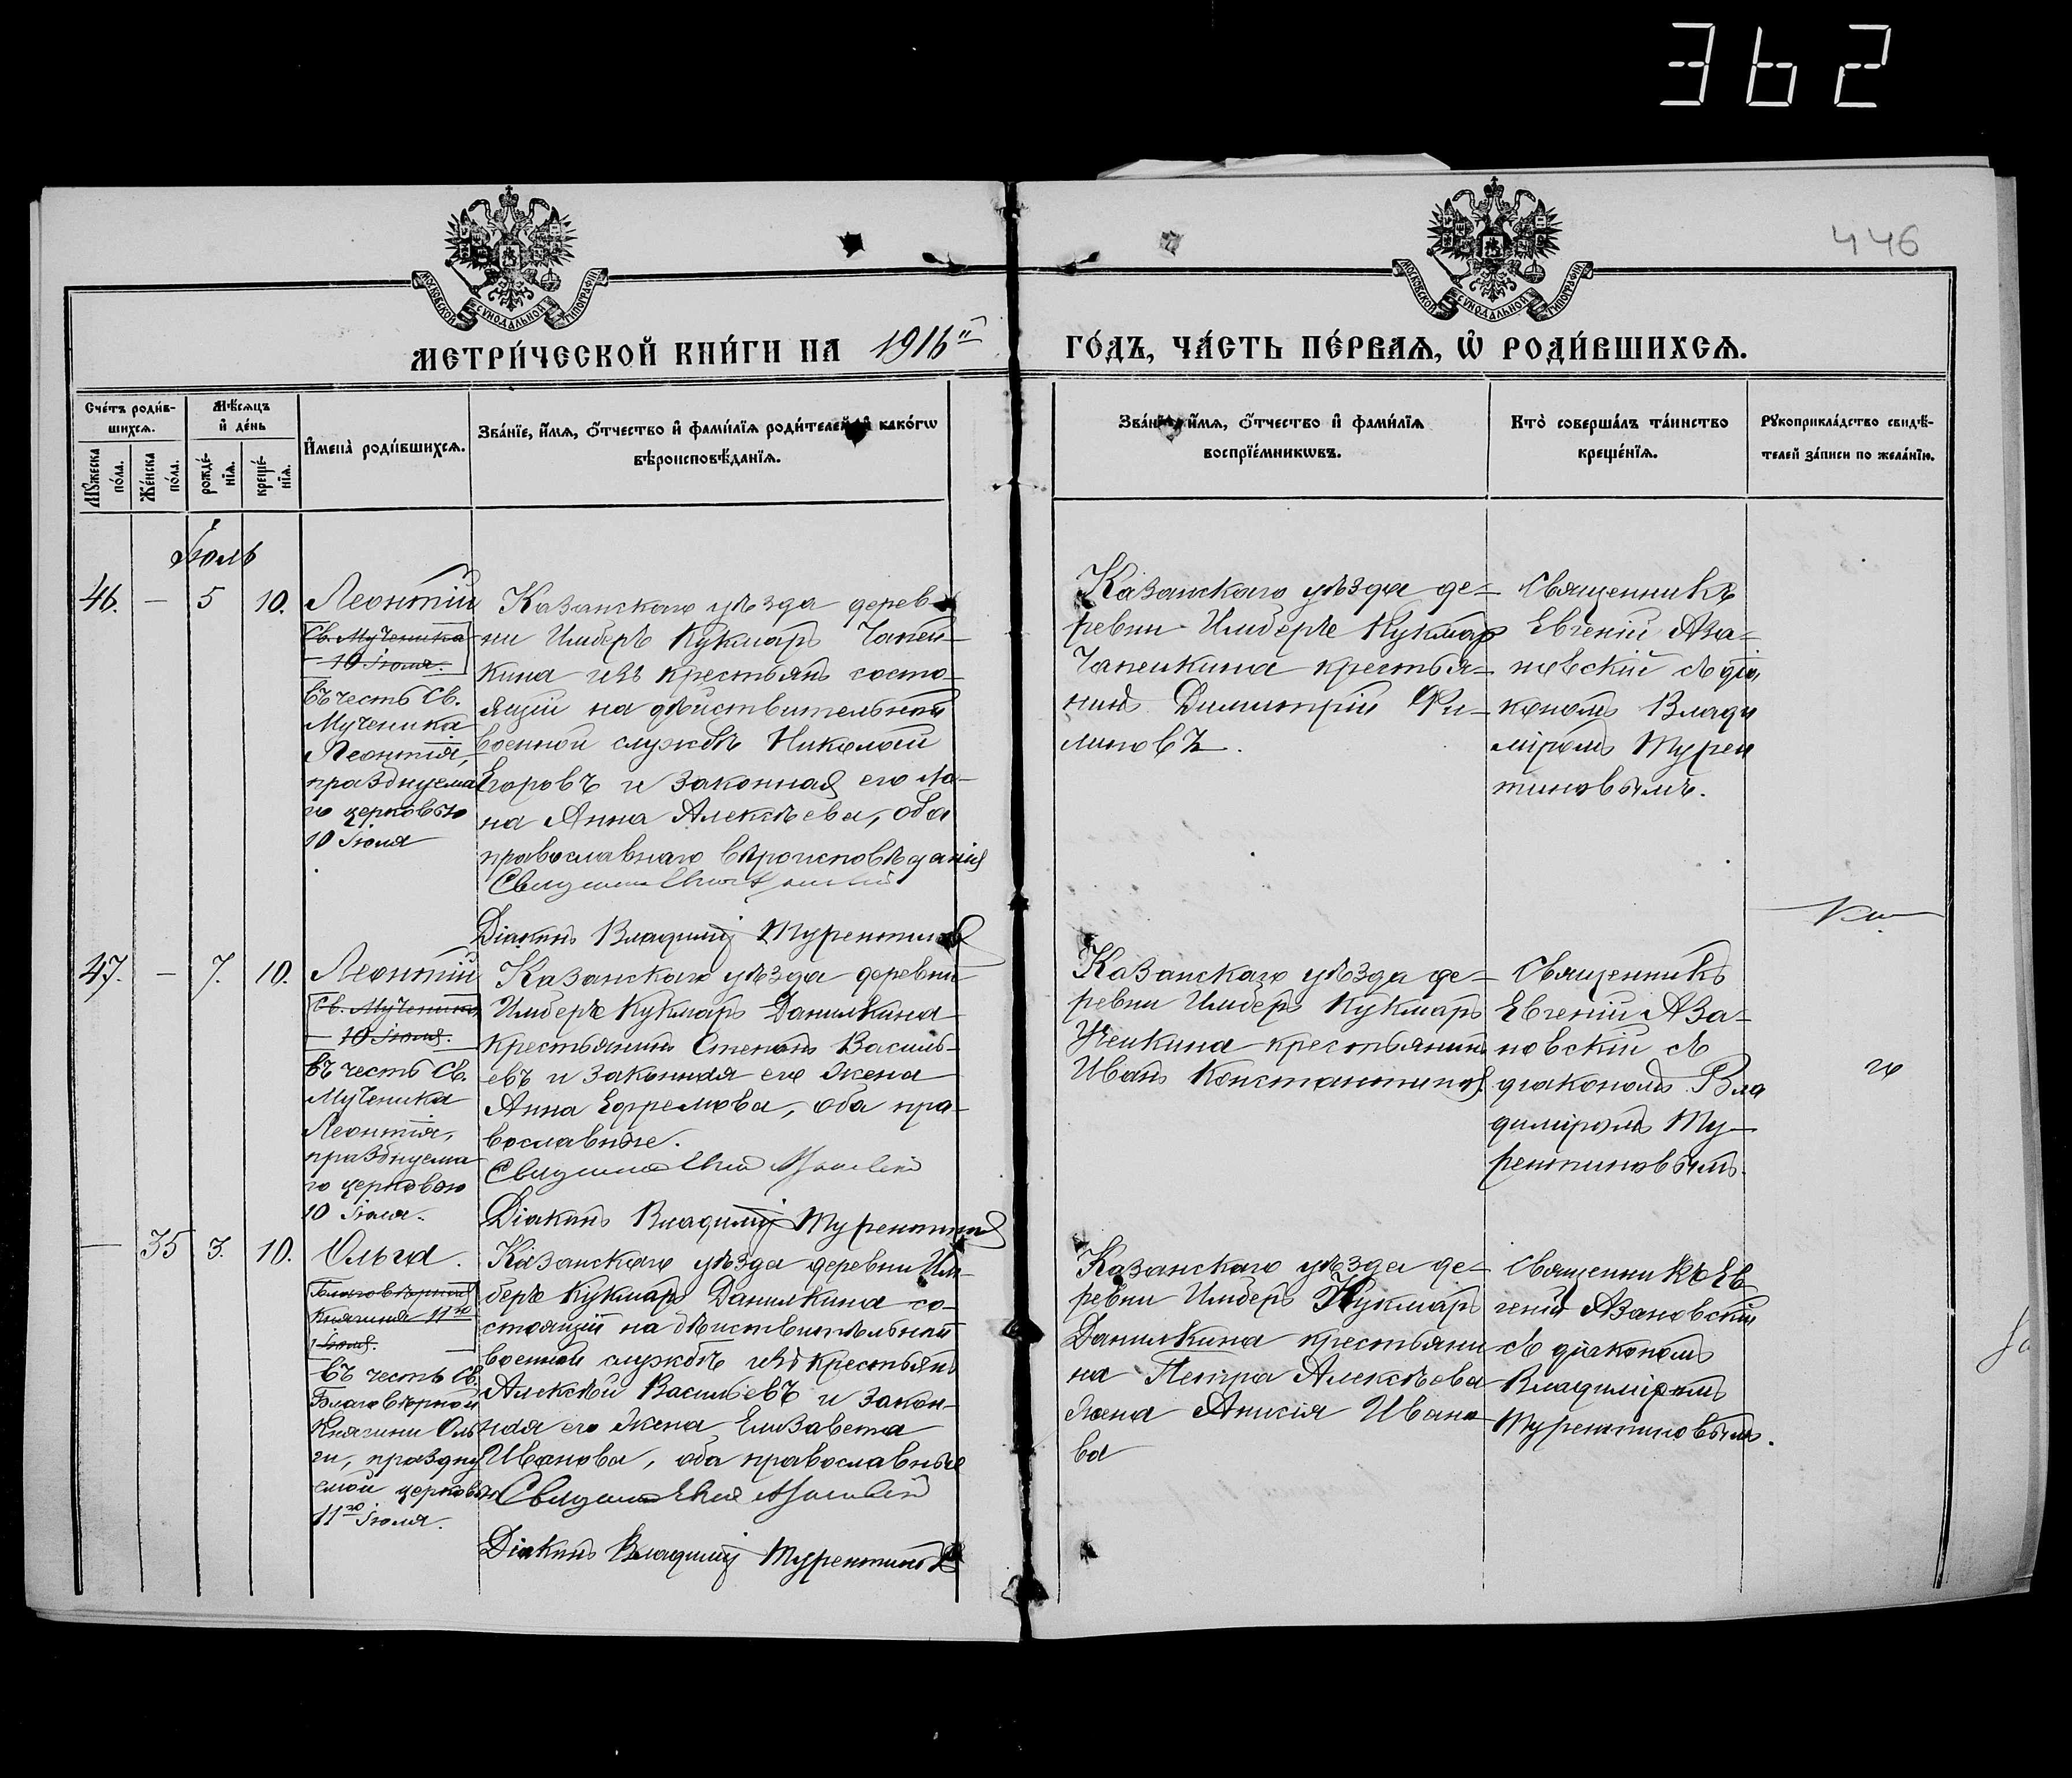 362
446
МОСКОВСКОЙ СѴНОДАЛЬНОЙ ТИПОГРАФІИ
МОСКОВСКОЙ СѴНОДАЛЬНОЙ ТИПОГРАФІИ
МЕТРИ́ЧЕСКОЙ КНИ́ГИ НА 1916й ГО́ДЪ, ЧА́СТЬ ПЕ́РВАѦ, Ѡ҆ РОДИ́ВШИХСѦ.
Сче́тъ роди́в-
шихсѧ.
Мꙋ́жеска
по́ла.
Же́нска
по́ла.
Мѣ́сѧцъ
и҆ де́нь
рожде́-
нїѧ.
креще́-
нїѧ.
И҆мена̀ роди́вшихсѧ.
Зва́нїе, и҆́мѧ, ѻ҆́тчество и҆ фами́лїѧ роди́телей, и҆ како́гѡ
вѣроисповѣ́данїѧ.
Зва́нїе, и҆́мѧ, ѻ҆́тчество и҆ фами́лїѧ
воспрїе́мникѡвъ.
Кто̀ соверша́лъ та́инство
креще́нїѧ.
Рꙋкоприкла́дство свидѣ́-
телей за́писи по жела́нїю.
Іюль
46. — 5 10.
Леонтій
Св. Мученика
10 Іюля.
въ честь Св.
Мученика
Леонтія,
празднуема
го церковью
10 Іюля
Казанскаго уѣзда дерев-
ни Имберъ Кукмаръ Чапей-
кина изъ крестьянъ состо-
ящій на дѣйствительной
военной службѣ Николай
Егоровъ и законная его же-
на Анна Алексѣева, оба
православнаго вѣроисповѣданія
Священникъ
Діаконъ Владиміръ Турентиновъ
Казанскаго уѣзда де-
ревни Имберъ Кукмаръ
Чапейкина крестья-
нинъ Димитрій Фи-
липовъ.
Священникъ
Евгеній Аза-
новскій съ діа
кономъ Влади
міромъ Турен
тиновымъ.
47. — 7. 10.
Леонтій
Св. Мученика
10 Іюля.
въ честь Св.
Мученика
Леонтія,
празднуема
го церковью
10 Іюля.
Казанскаго уѣзда деревни
Имберъ Кукмаръ Данилкина
крестьянинъ Степанъ Василь-
евъ и законная его жена
Анна Ефремова, оба пра-
вославные.
Священникъ
Діаконъ Владиміръ Турентиновъ
Казанскаго уѣзда де-
ревни Имберъ Кукмаръ
крестьянинъ
Иванъ Константиновъ.
Священникъ
Евгеній Аза-
новскій съ
діакономъ Вла
диміромъ Ту-
рентиновымъ.
— 35 3. 10.
Ольга.
Благовѣрной
Княгини 11го
Іюля.
въ честь Св.
Благовѣрной
Княгини Оль
ги, праздну
емой церковью
11го Іюля.
Казанскаго уѣзда деревни Им-
беръ Кукмаръ Данилкина со-
стоящій на дѣйствительной
военной службѣ изъ крестьянъ
Алексѣй Васильевъ и закон-
ная его жена Елизавета
Иванова, оба православные
Священникъ
Діаконъ Владиміръ Турентиновъ
Казанскаго уѣзда де-
ревни Имберъ Кукмаръ
Данилкина крестьяни
на Петра Алексѣева
жена Анисія Ивано
ва
Священникъ Ев-
геній Азановскій
съ діакономъ
Владиміромъ
Турентиновымъ.